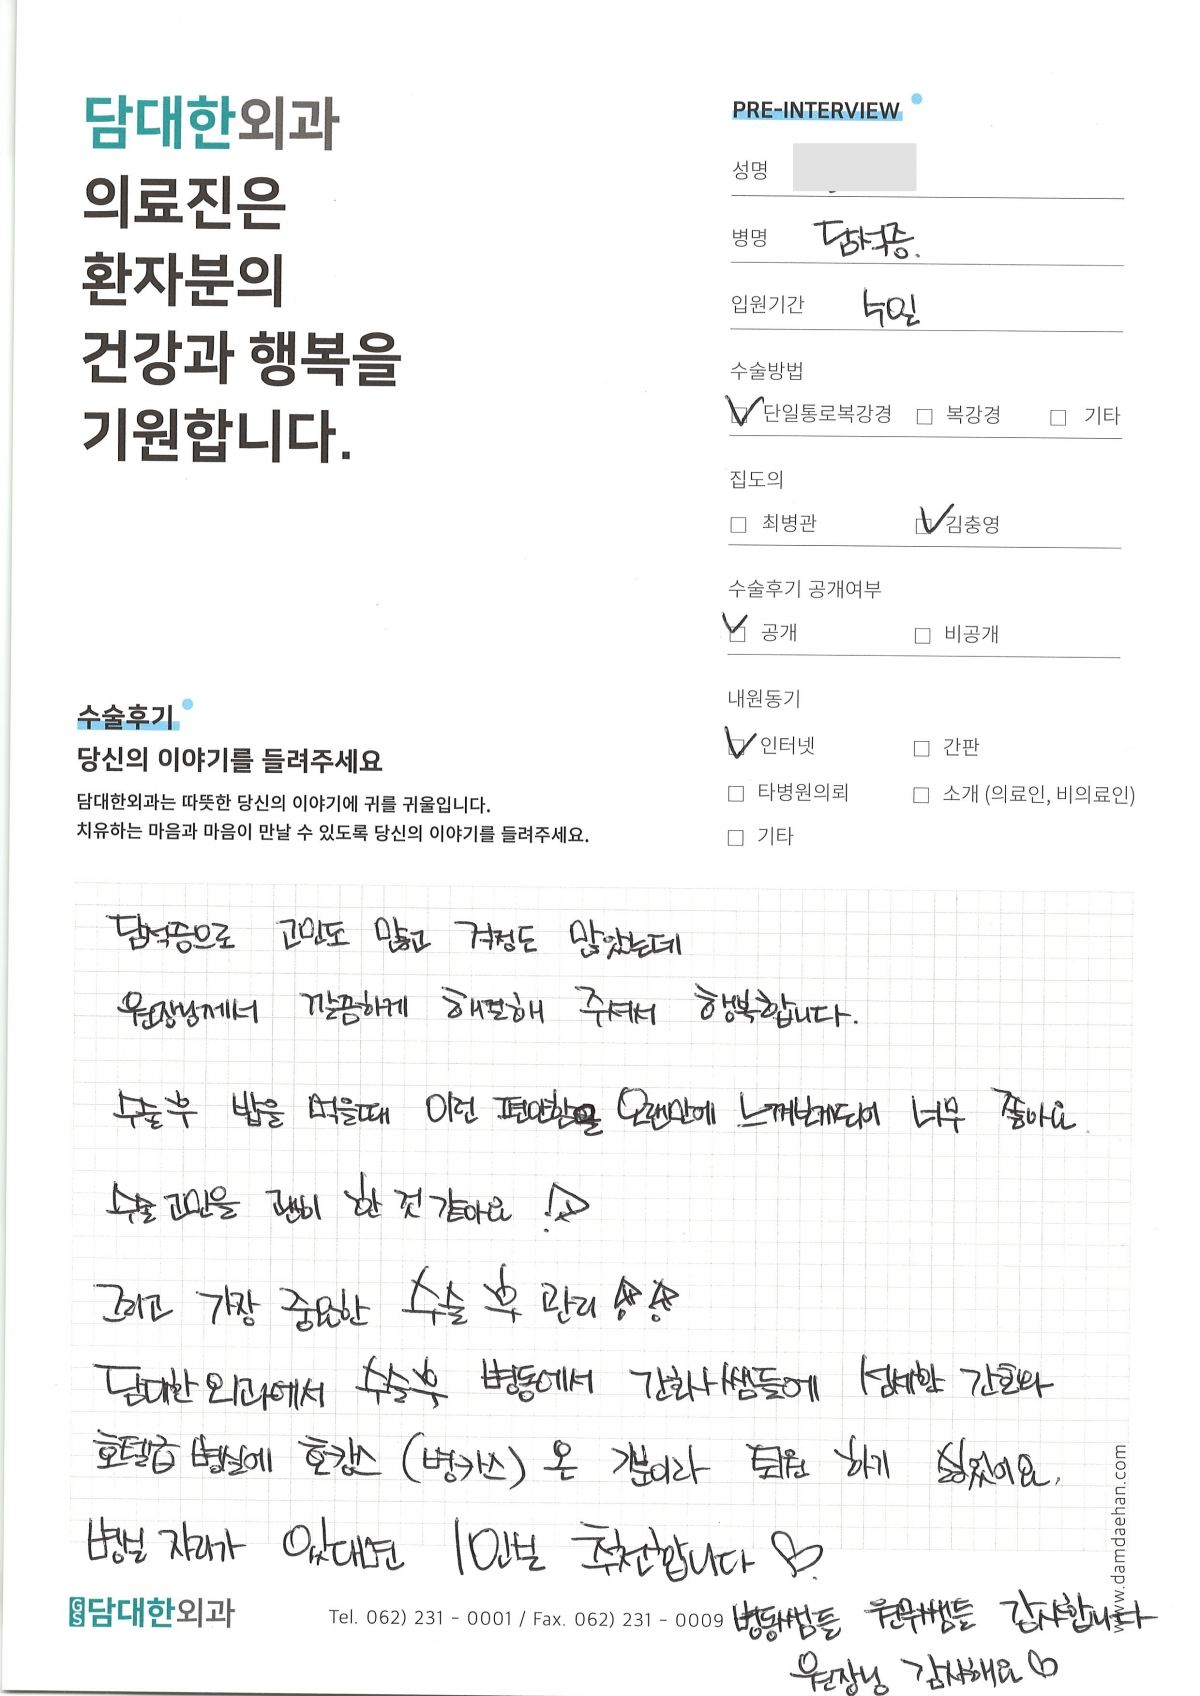 담대한외과
의료진은
환자분의
건강과 행복을
기원합니다.
PRE-INTERVIEW
성명
병명 담석증.
입원기간 4일
수술방법
☑ 단일통로복강경 □ 복강경 □ 기타
집도의
□ 최병관 ☑ 김충영
수술후기 공개여부
☑ 공개 □ 비공개
내원동기
☑ 인터넷 □ 간판
□ 타병원의뢰 □ 소개 (의료인, 비의료인)
□ 기타
수술후기
당신의 이야기를 들려주세요
담대한외과는 따뜻한 당신의 이야기에 귀를 귀울입니다.
치유하는 마음과 마음이 만날 수 있도록 당신의 이야기를 들려주세요.
담석증으로 고민도 많고 걱정도 많았는데
원장님께서 깔끔하게 해결해 주셔서 행복합니다.
수술후 밥을 먹을때 이런 편안함을 오랜만에 느껴보게되어 너무 좋아요.
수술고민을 괜히 한 것 같아요
그리고 가장 중요한 수술 후 관리
담대한외과에서 수술후 병동에서 간호사쌤들에 섬세한 간호와
호텔급 병실에 호캉스 (병캉스) 온 기분이라 퇴원 하기 싫었어요.
병실 자리가 있다면 1인실 추천합니다 ♡
병동쌤들 원무쌤들 감사합니다
원장님 감사해요 ♡
GS담대한외과
Tel. 062) 231 - 0001 / Fax. 062) 231 - 0009
www.damdaehan.com